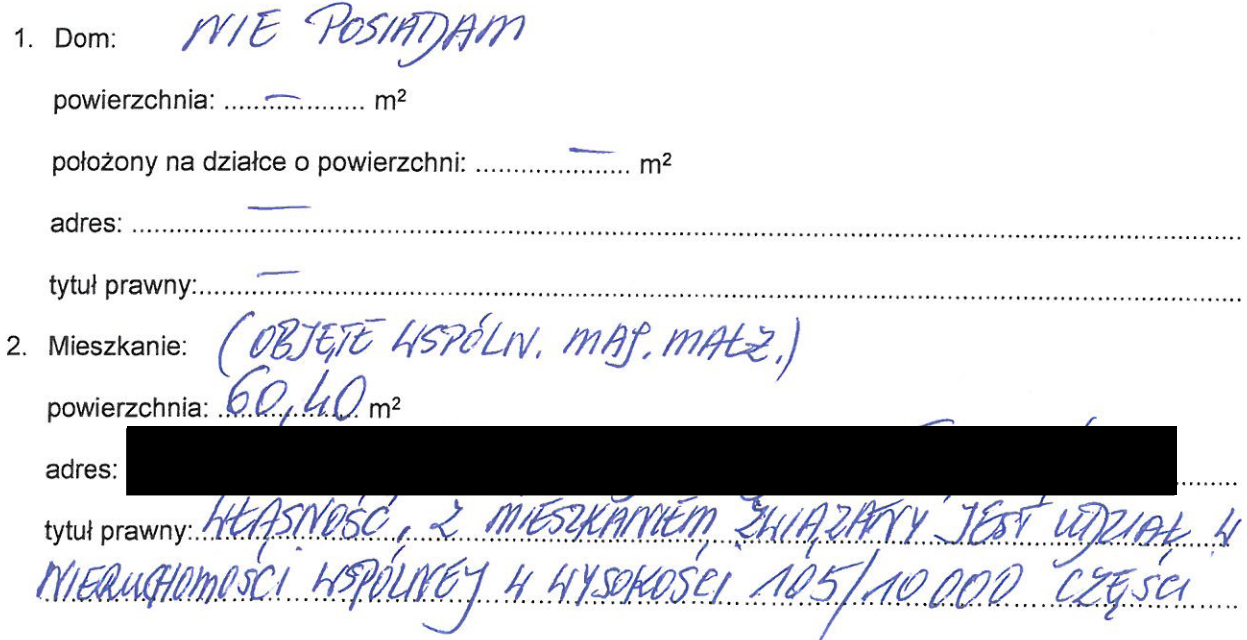 1. Dom: NIE POSIADAM
powierzchnia: ...—... m²
położony na działce o powierzchni: ...—... m²
adres: ...—...
tytuł prawny:...—...
2. Mieszkanie: (OBJĘTE WSPÓLN. MAJ. MAŁŻ.)
powierzchnia: 60,40 m²
adres:
tytuł prawny: WŁASNOŚĆ, Z MIESZKANIEM ZWIĄZANY JEST UDZIAŁ W
NIERUCHOMOŚCI WSPÓLNEJ W WYSOKOŚCI 105/10 000 CZĘŚCI